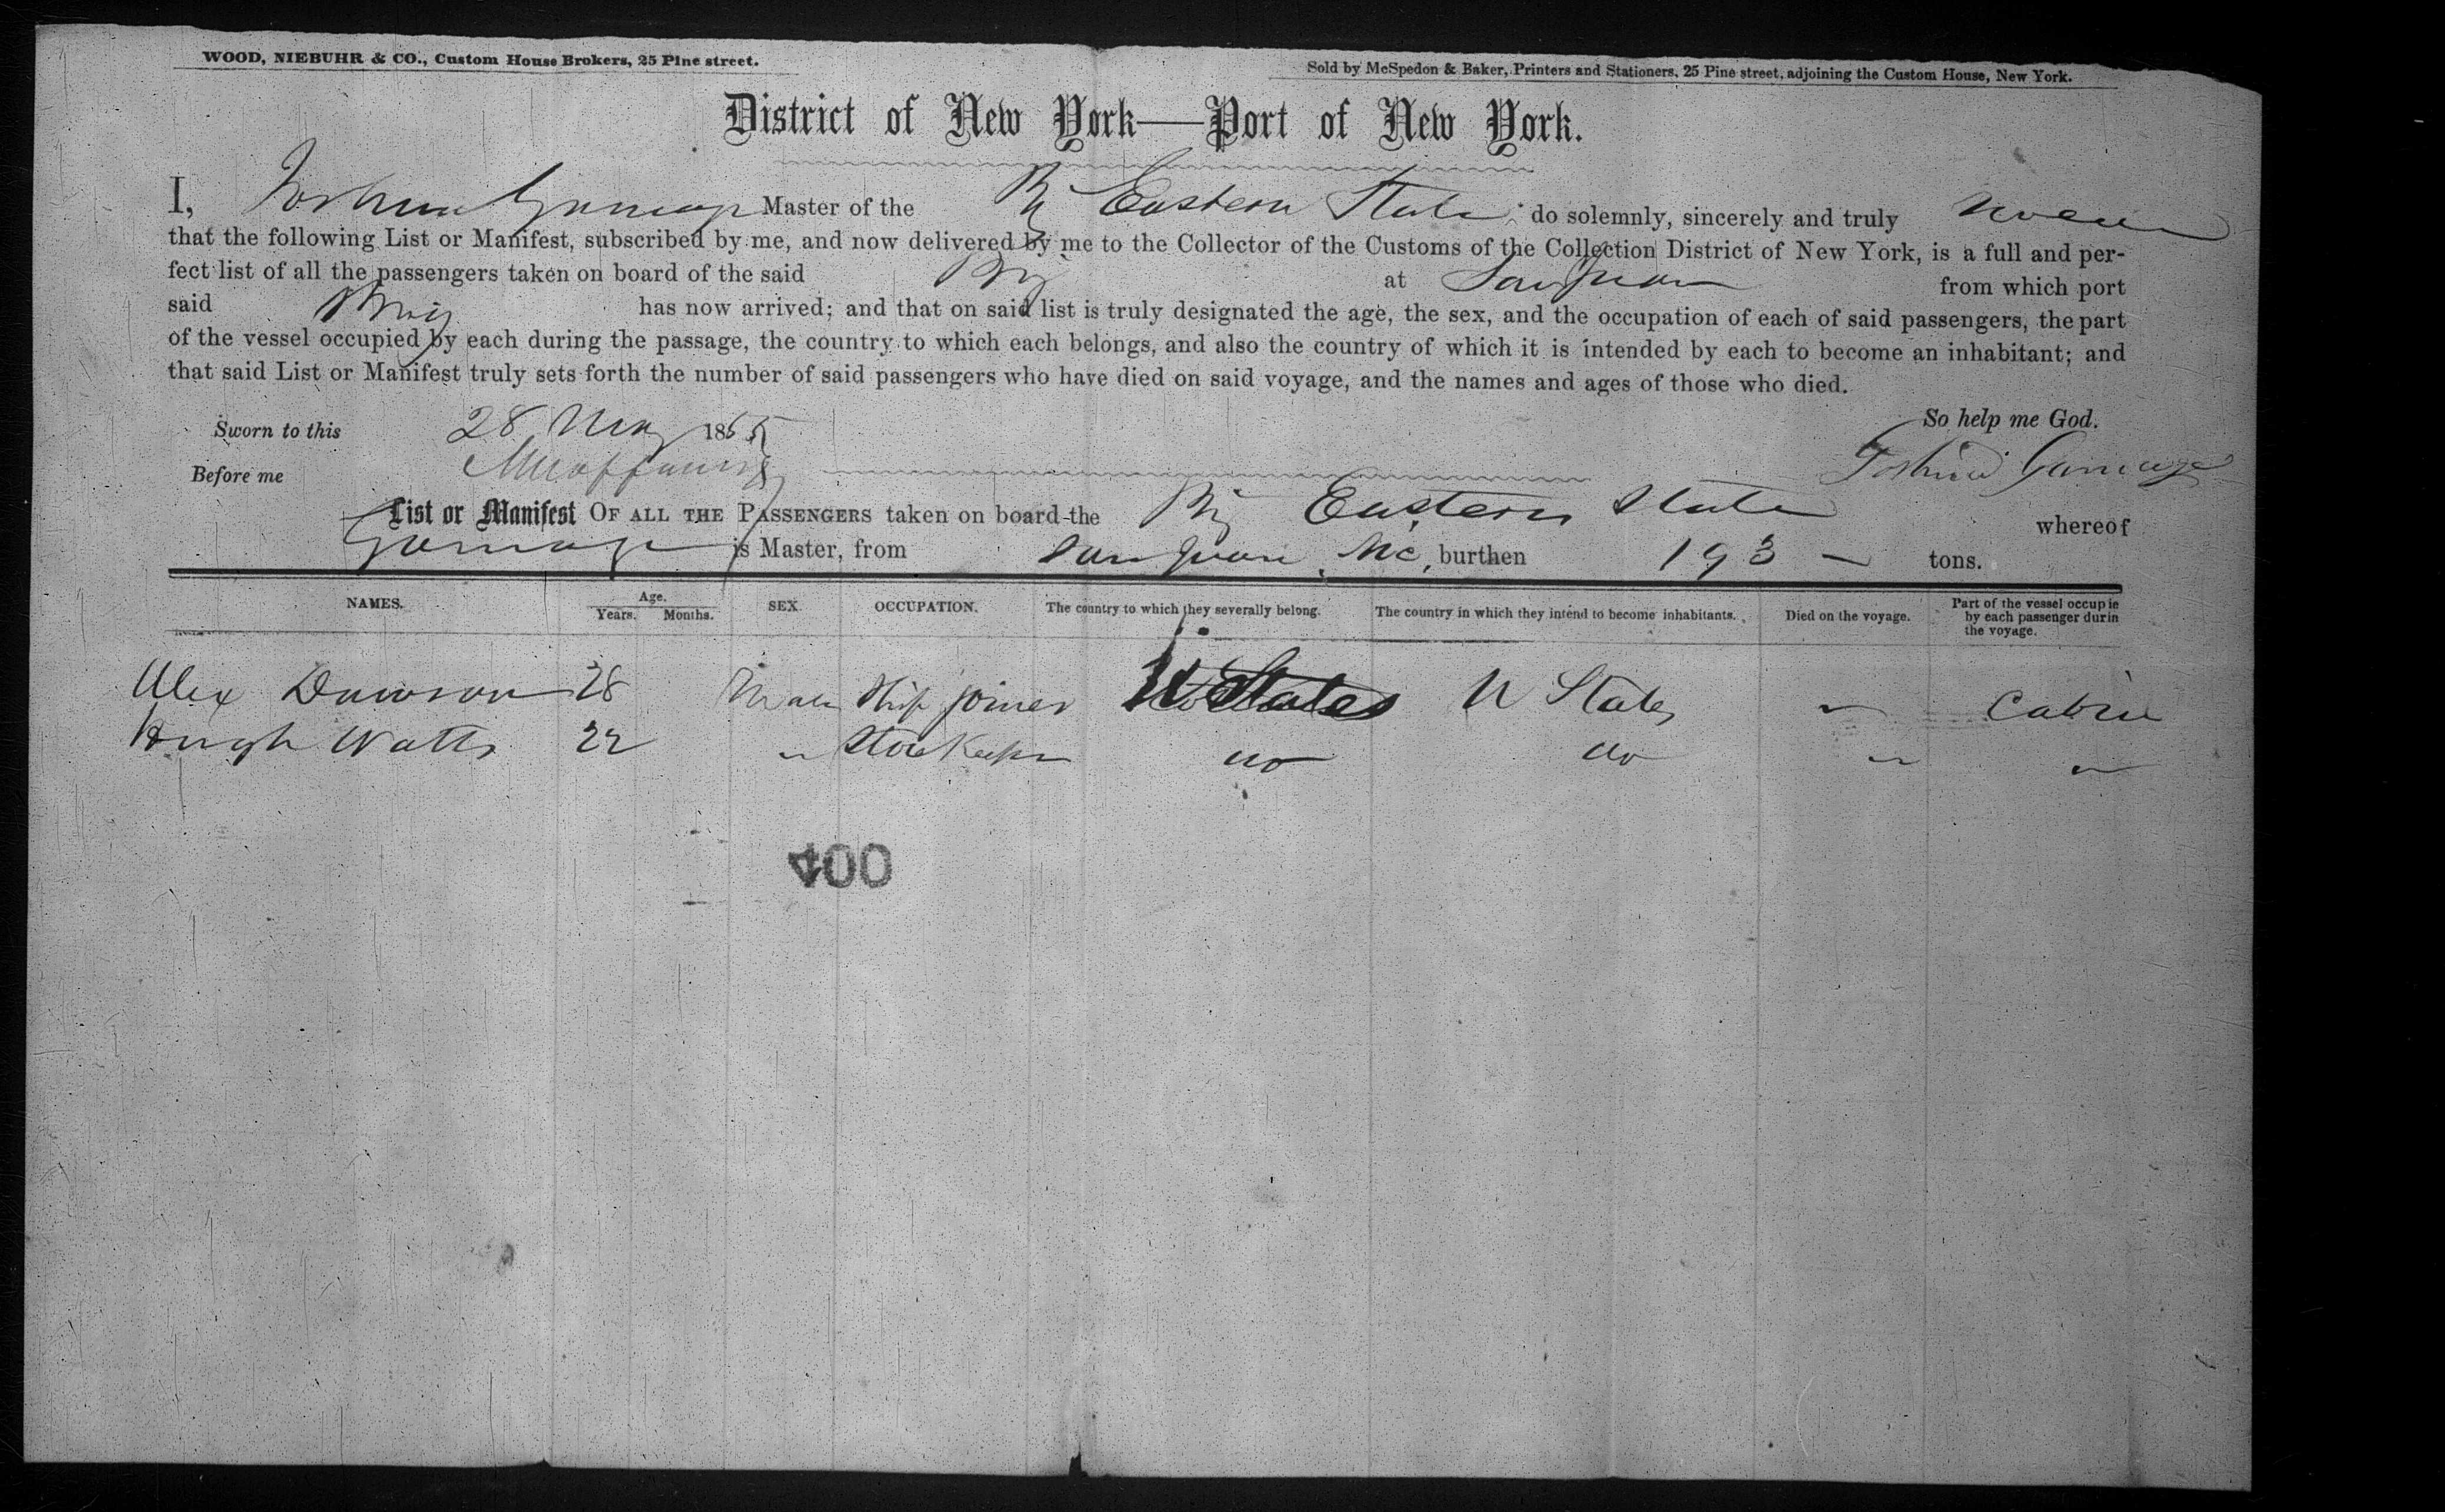 WOOD, NIEBUHR & CO., Custom House Brokers, 25 Pine street.
Sold by McSpedon & Baker, Printers and Stationers, 25 Pine street, adjoining the Custom House, New York.
District of New York—Port of New York.
I, Joshua Gamage Master of the Bg Eastern State do solemnly, sincerely and truly swear
that the following List or Manifest, subscribed by me, and now delivered by me to the Collector of the Customs of the Collection District of New York, is a full and per-
fect list of all the passengers taken on board of the said Brig at San Juan from which port
said Brig has now arrived; and that on said list is truly designated the age, the sex, and the occupation of each of said passengers, the part
of the vessel occupied by each during the passage, the country to which each belongs, and also the country of which it is intended by each to become an inhabitant; and
that said List or Manifest truly sets forth the number of said passengers who have died on said voyage, and the names and ages of those who died.
Sworn to this 28 May 1855 So help me God.
Before me Joshua Gamage
List or Manifest OF ALL THE PASSENGERS taken on board the Brig Eastern State whereof
Gamage is Master, from San Juan Nic, burthen 193 — tons.
NAMES. Age. Years. Months. SEX. OCCUPATION. The country to which they severally belong. The country in which they intend to become inhabitants. Died on the voyage. Part of the vessel occupie by each passenger durin the voyage.
Alex Dawson 28 Male Ship joiner U States U States " Cabin
Hugh Watts 22 " Store Keeper do do " "
400